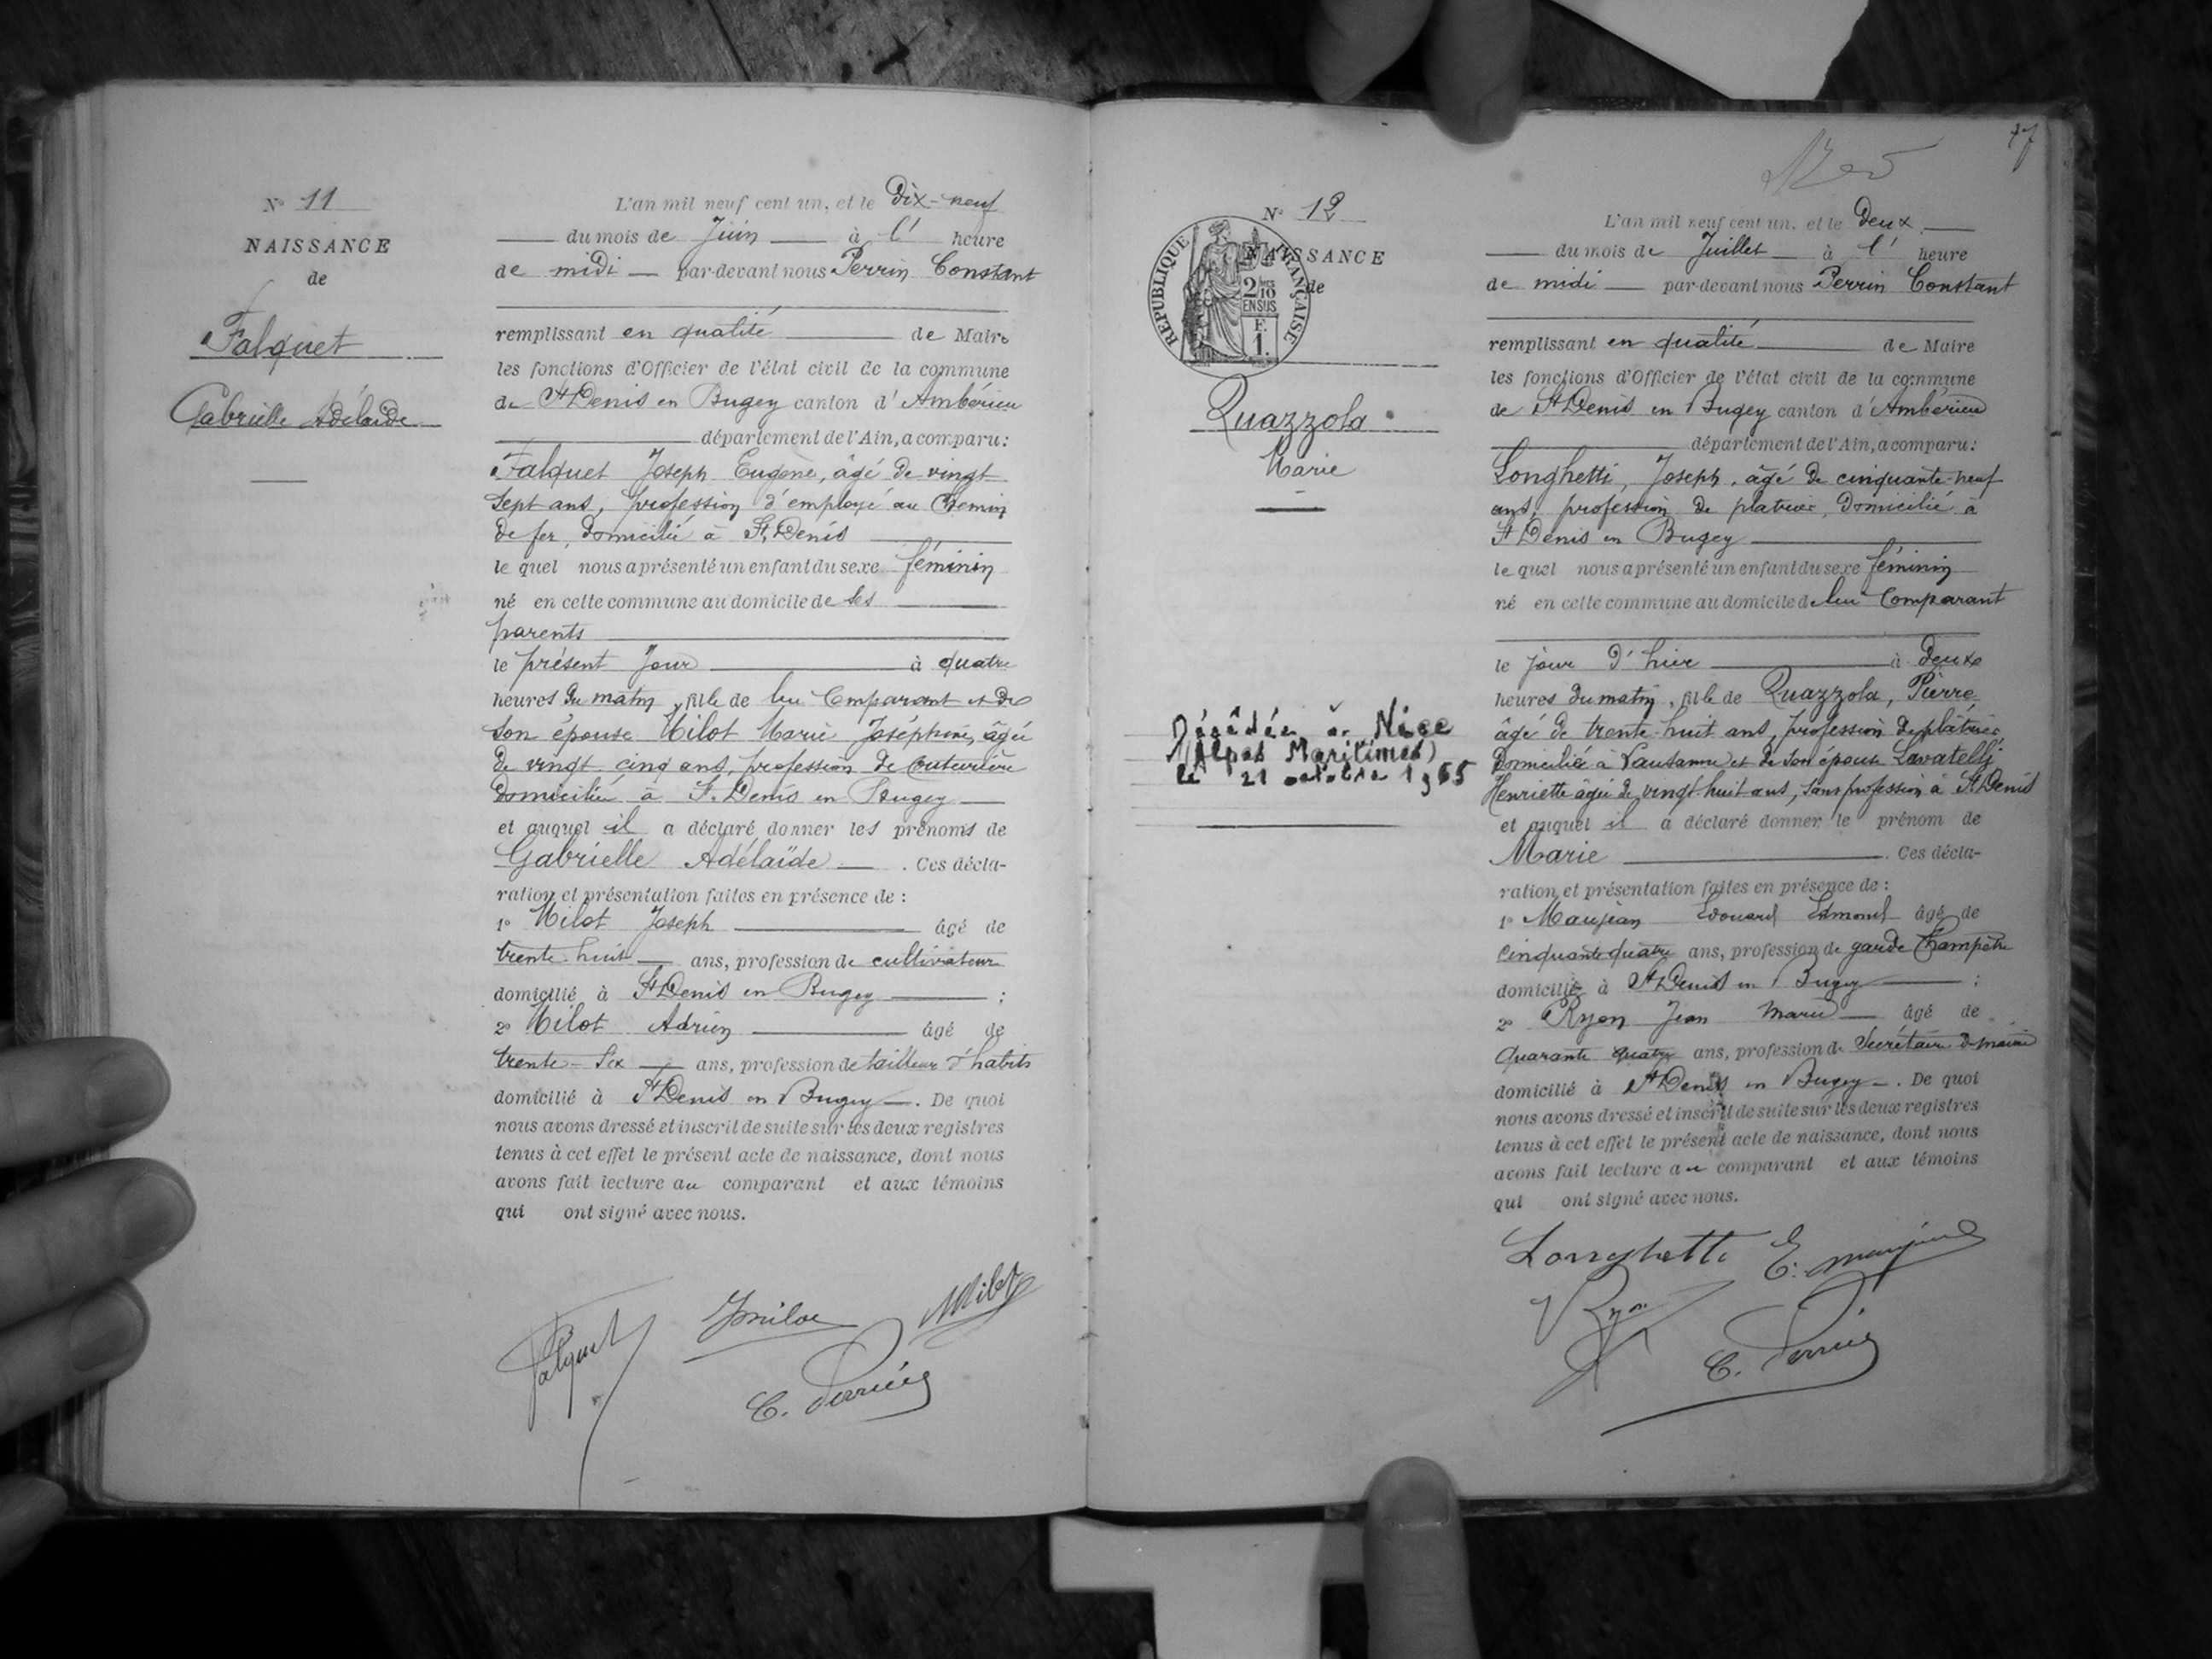 N° 11
NAISSANCE
de
Falquet
Gabrielle Adélaïde
L'an mil neuf cent un, et le Dix-neuf
du mois de Juin à l' heure
de midi par-devant nous Perrin Constant
remplissant en qualité de Maire
les fonctions d'Officier de l'état civil de la commune
de St Denis en Bugey canton d'Ambérieu
département de l'Ain, a comparu:
Falquet Joseph Eugène, âgé de vingt
sept ans, profession d'employé au Chemin
de fer, domicilié à St Denis
le quel nous a présenté un enfant du sexe féminin
né en cette commune au domicile de ses
parents
le présent jour à quatre
heures du matin, fille de lui Comparant et de
son épouse Milot Marie Joséphine, âgée
de vingt cinq ans, profession de Couturière
domiciliée à St Denis en Bugey
et auquel il a déclaré donner les prénoms de
Gabrielle Adélaïde. Ces décla-
ration et présentation faites en présence de :
1° Milot Joseph âgé de
trente huit ans, profession de cultivateur
domicilié à St Denis en Bugey ;
2° Milot Adrien âgé de
trente-six ans, profession de tailleur d'habits
domicilié à St Denis en Bugey. De quoi
nous avons dressé et inscrit de suite sur les deux registres
tenus à cet effet le présent acte de naissance, dont nous
avons fait lecture au comparant et aux témoins
qui ont signé avec nous.
Falquet J Milot Milot
C. Perrin
77
N° 12
NAISSANCE
de
REPUBLIQUE FRANÇAISE
2/10 EN SUS
F. 1.
Quazzola
Marie
Décédée à Nice
(Alpes Maritimes)
le 21 octobre 1965
L'an mil neuf cent un, et le Deux
du mois de Juillet à l' heure
de midi par-devant nous Perrin Constant
remplissant en qualité de Maire
les fonctions d'Officier de l'état civil de la commune
de St Denis en Bugey canton d'Ambérieu
département de l'Ain, a comparu:
Longhetti, Joseph, âgé de cinquante-neuf
ans, profession de platrier, domicilié à
St Denis en Bugey
le quel nous a présenté un enfant du sexe féminin
né en cette commune au domicile de lui Comparant
le jour d'hier à deux
heures du matin, fille de Quazzola, Pierre
âgé de trente-huit ans, profession de plâtrier,
domicilié à Lausanne et de son épouse Lavatelli
Henriette âgée de vingt-huit ans, sans profession à St Denis
et auquel il a déclaré donner le prénom de
Marie. Ces décla-
ration et présentation faites en présence de :
1° Maujean Edouard Edmond âgé de
cinquante quatre ans, profession de garde Champêtre
domicilié à St Denis en Bugey ;
2° Ryon Jean Marie âgé de
quarante quatre ans, profession de Secrétaire de mairie
domicilié à St Denis en Bugey. De quoi
nous avons dressé et inscrit de suite sur les deux registres
tenus à cet effet le présent acte de naissance, dont nous
avons fait lecture au comparant et aux témoins
qui ont signé avec nous.
Longhetti E. Maujean
Ryon
C. Perrin